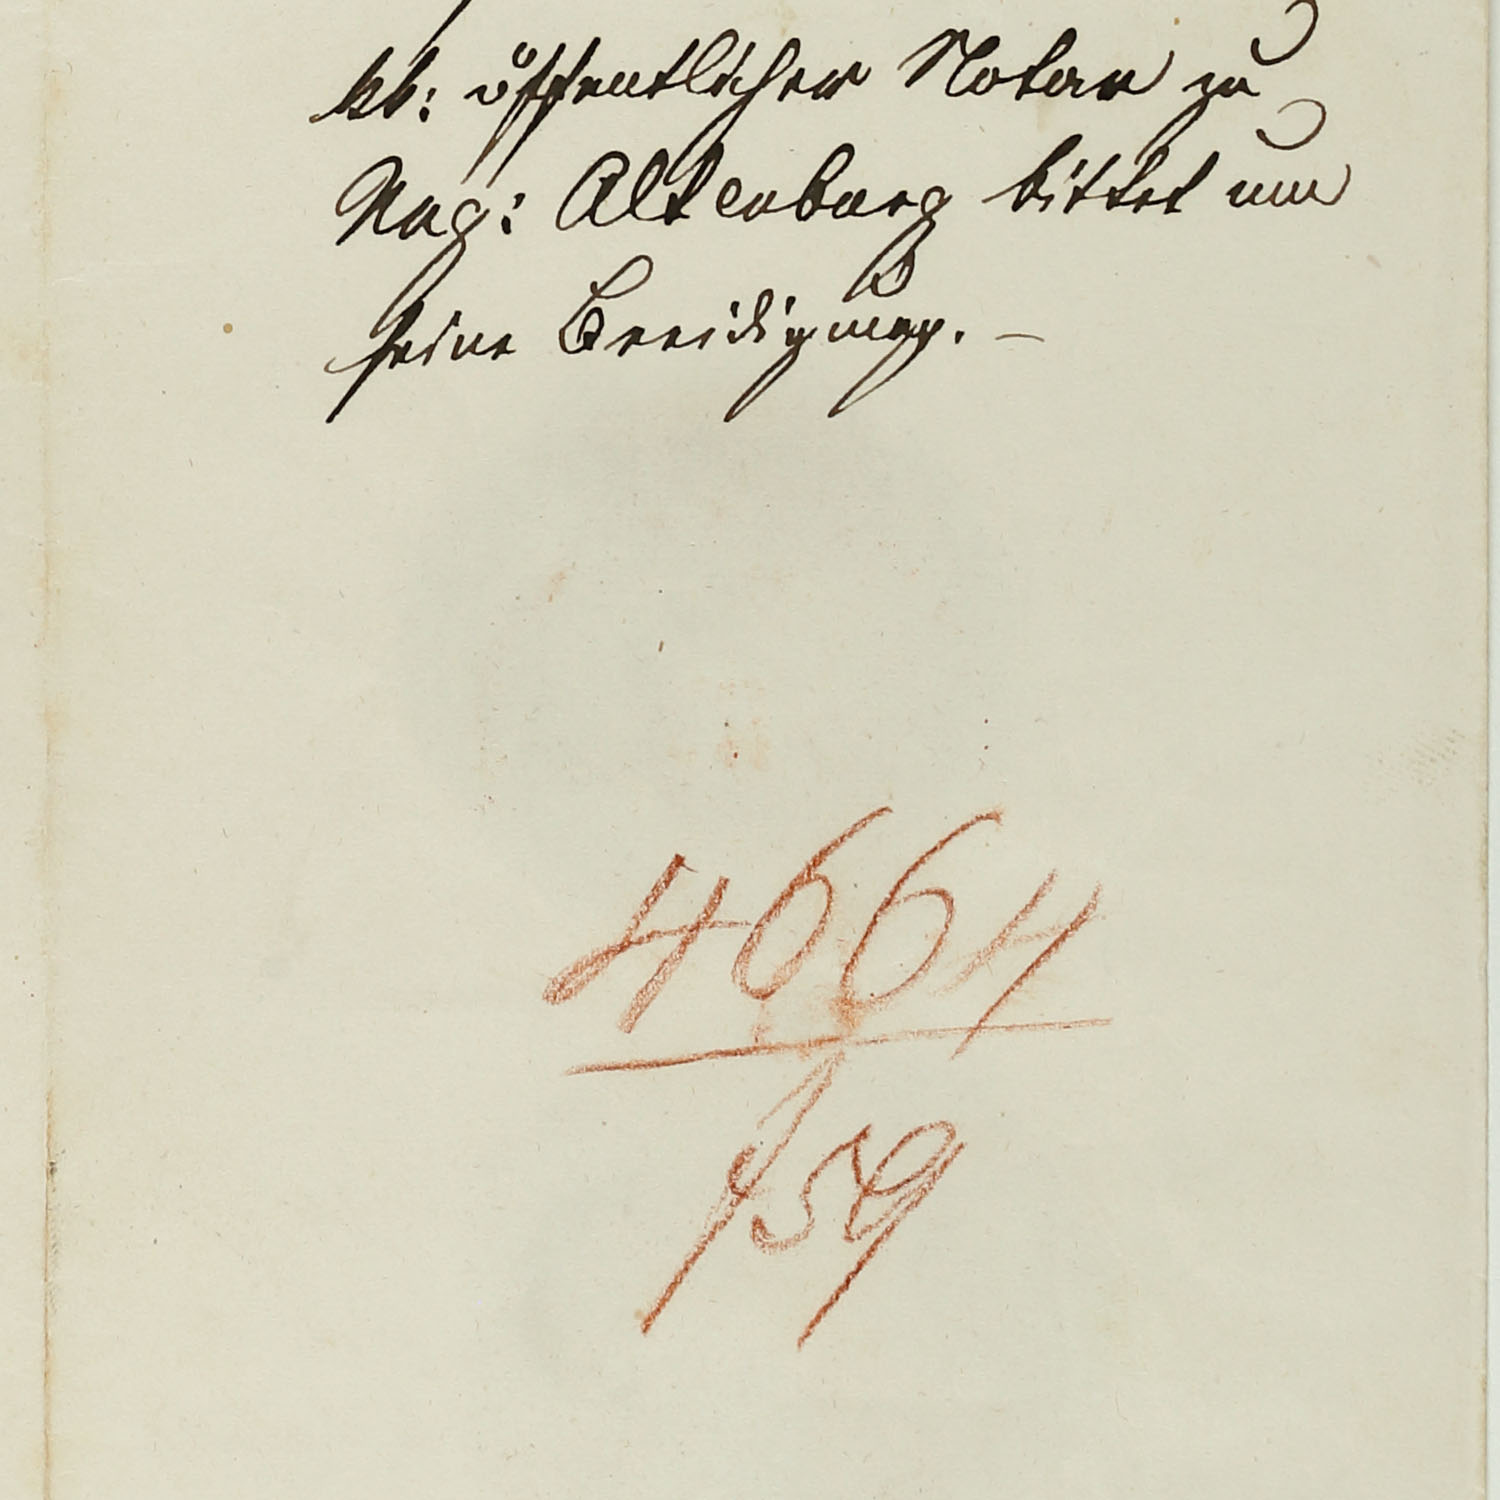 kk: öffentlicher Notar zu
Ung: Altenburg bittet um
seine Beeidigung. –
4664
/59